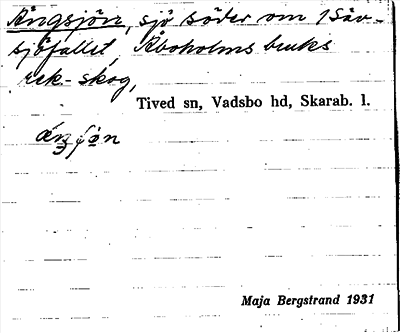 Ängsjön, sjö söder om 1 Säv-
sjöfallet, Åboholms bruks
rek. skog,
Tived sn, Vadsbo hd, Skarab. l.
Maja Bergstrand 1931